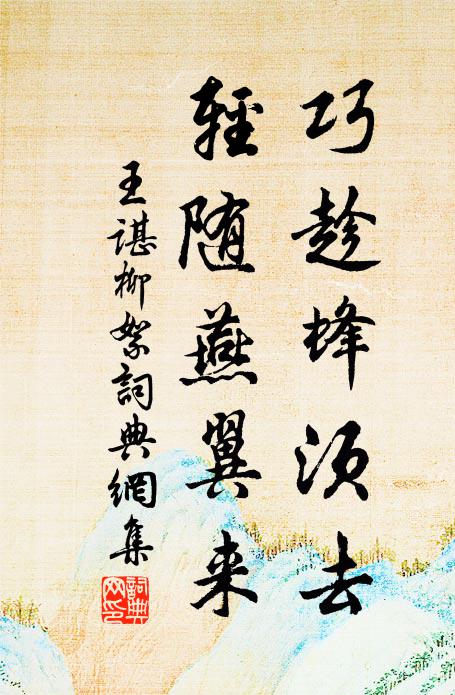 巧趁蜂须去
轻随燕翼来
王谌柳絮詞典網集
詞典网印